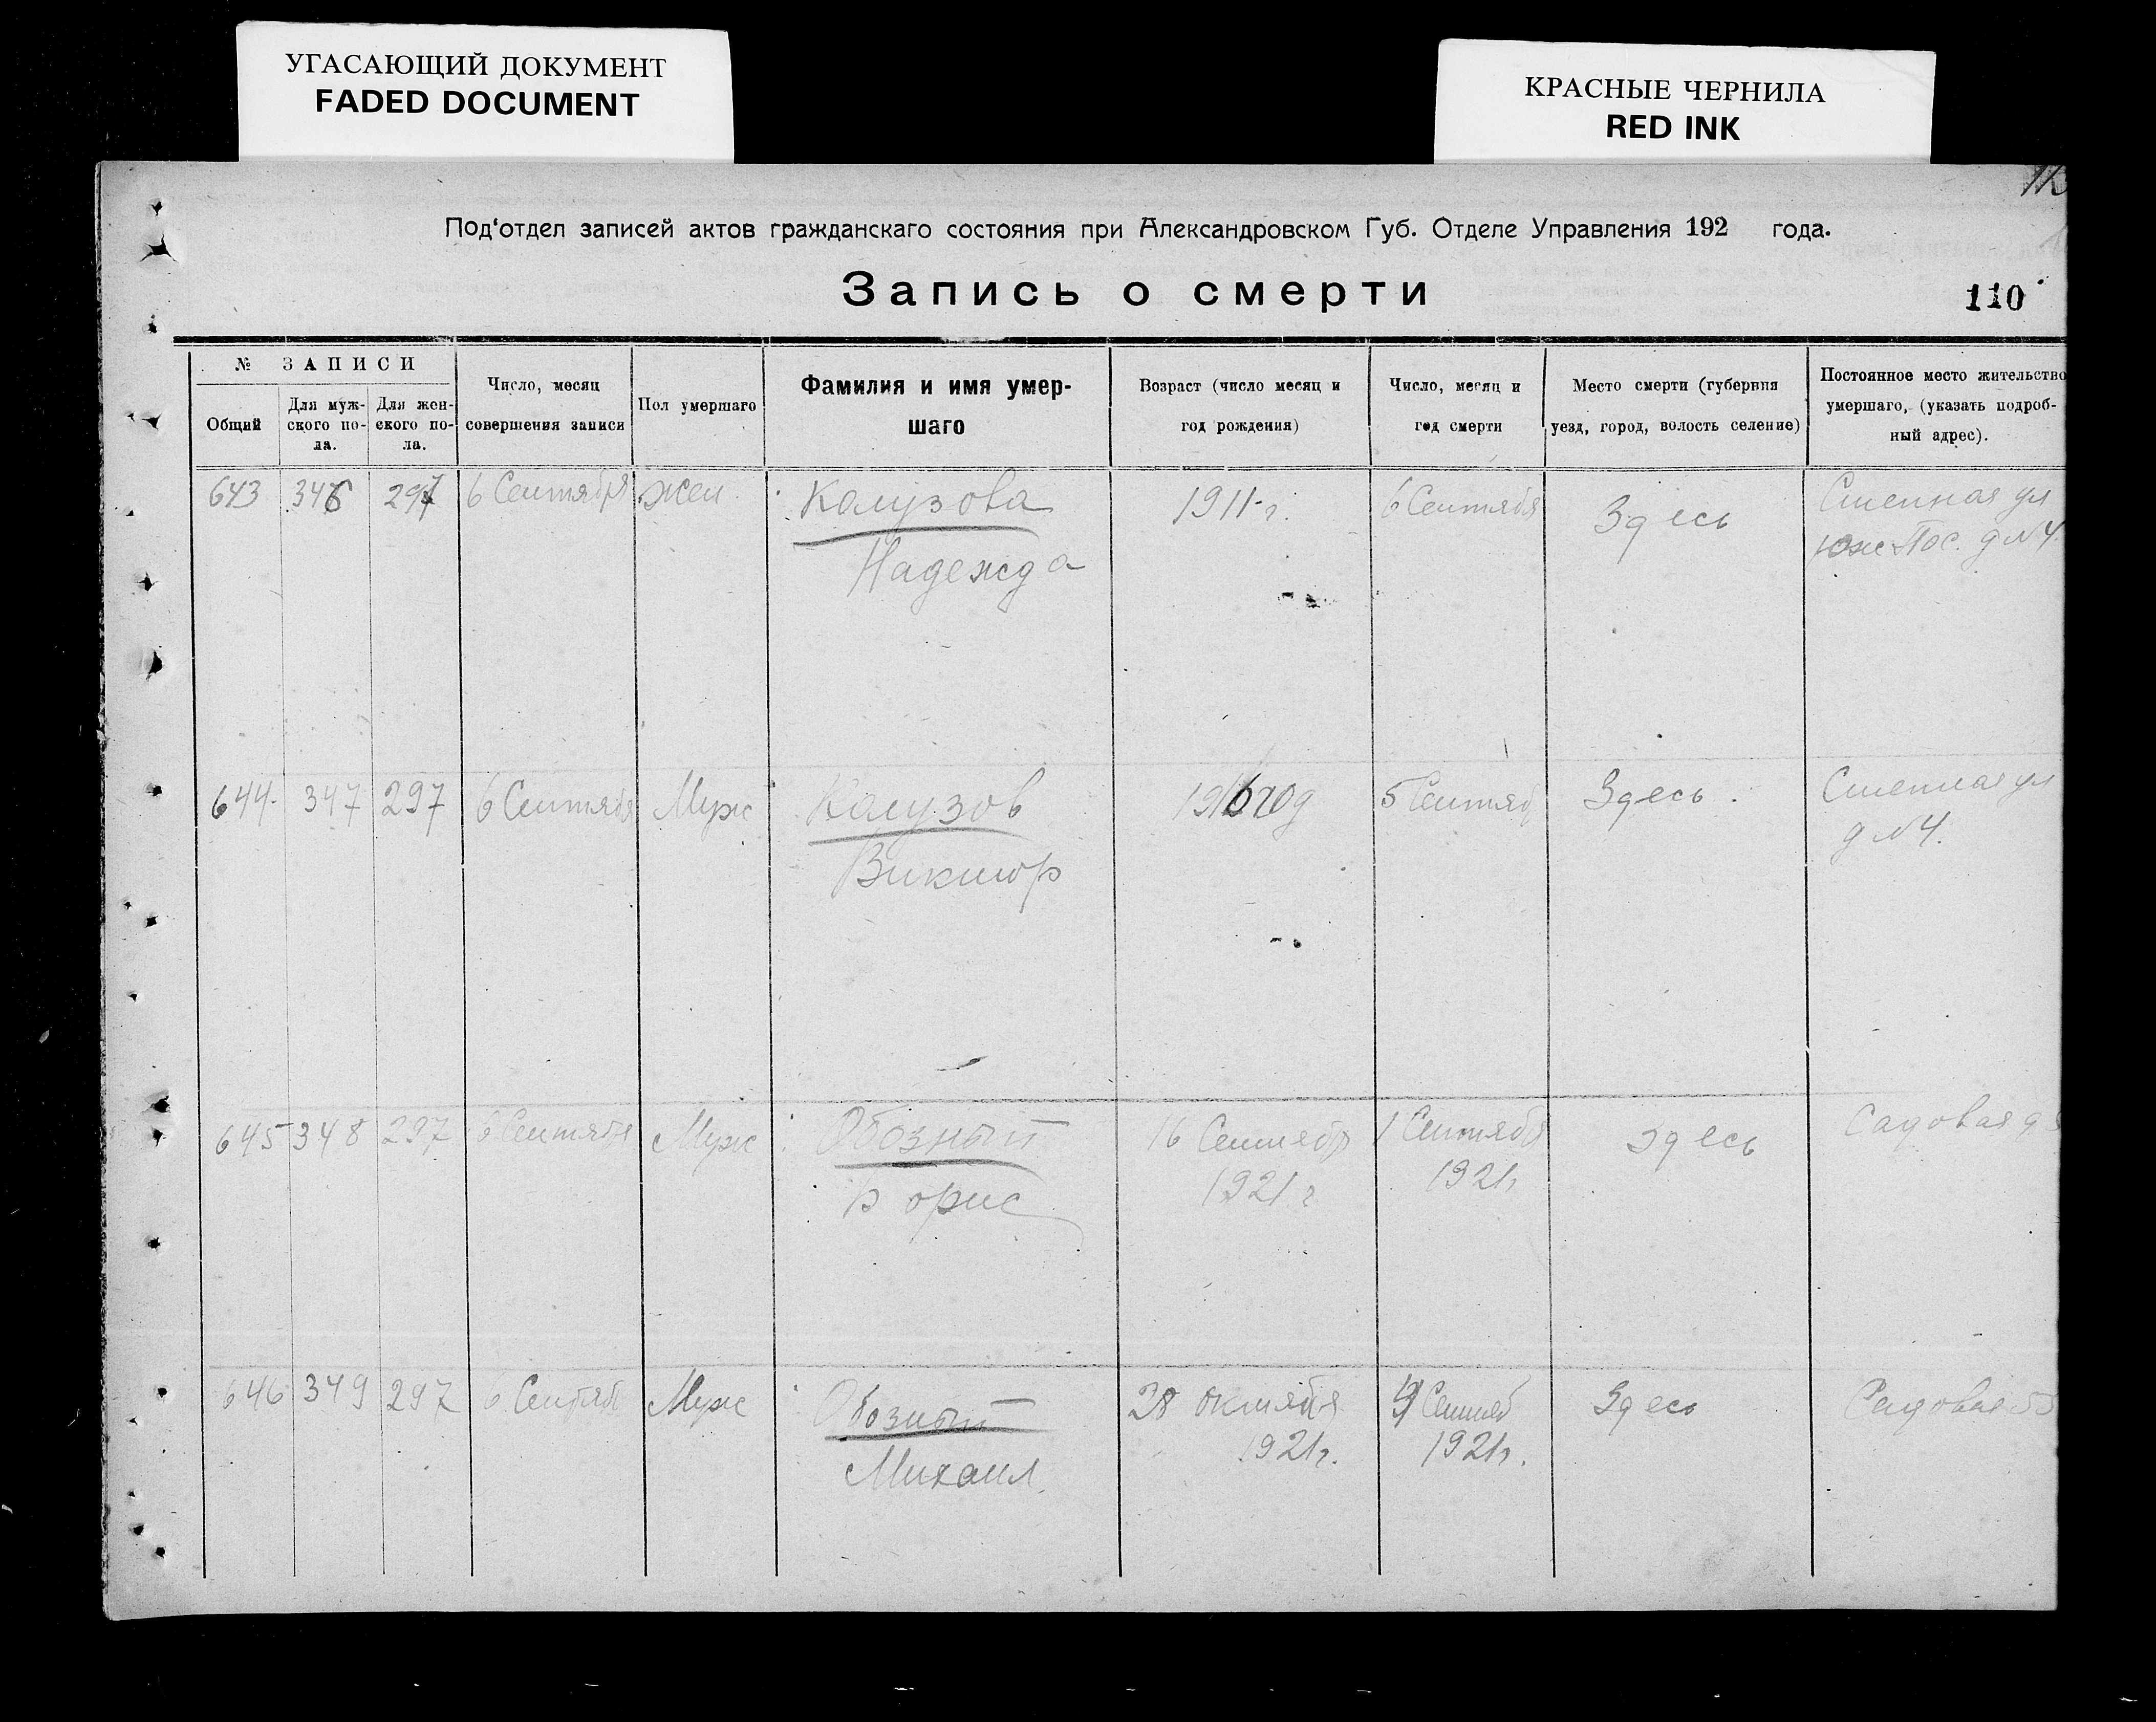 УГАСАЮЩИЙ ДОКУМЕНТ
FADED DOCUMENT
КРАСНЫЕ ЧЕРНИЛА
RED INK
Под'отдел записей актов гражданскаго состояния при Александровском Губ. Отделе Управления 192 года.
Запись о смерти
110
№ ЗАПИСИ
Общий
Для муж-
ского по-
ла.
Для жен-
ского по-
ла.
Число, месяц
совершения записи
Пол умершаго
Фамилия и имя умер-
шаго
Возраст (число месяц и
год рождения)
Число, месяц и
год смерти
Место смерти (губерния
уезд, город, волость селение)
Постоянное место жительство
умершаго, (указать подроб-
ный адрес).
643 346 297 6 Сентября Жен. Калузова 1911 г. 6 Сентября Здесь Степная ул
Надежда Юж Пос. д №4.
644 347 297 6 Сентября Муж Калузов 1916 год 5 Сентяб Здесь. Степная ул
Виктор д №4.
645 348 297 6 Сентября Муж Обозный 16 Сентябр 1 Сентября Здесь Садовая д
Борис 1921 г 1921г
646 349 297 6 Сентяб Муж Обозный 28 октября Сентяб Здесь Садовая
Михаил. 1921г. 1921г.